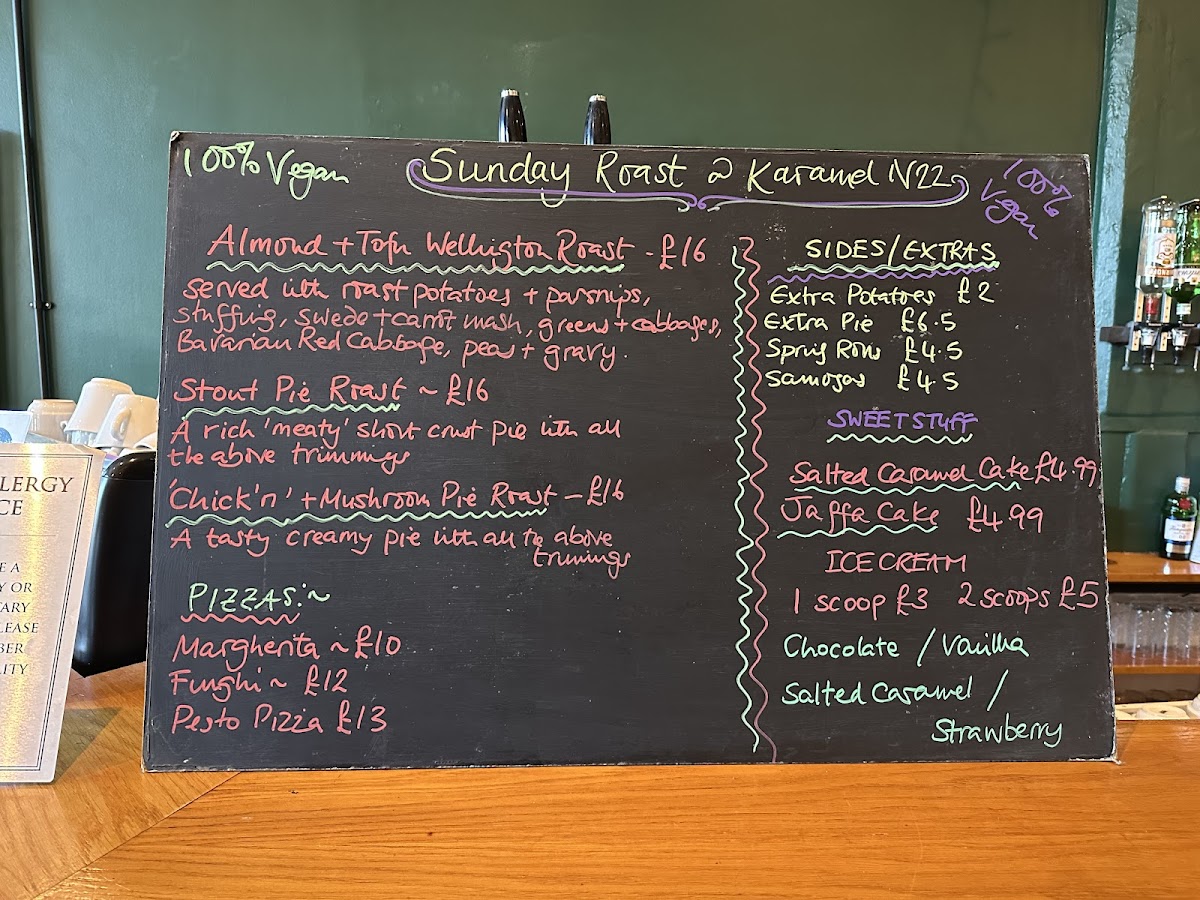 100% Vegan
Sunday Roast @ Karamel N22
100%
Vegan
Almond + Tofu Wellington Roast - £16
served with roast potatoes + parsnips,
stuffing, swede + carrot mash, greens + cabbages,
Bavarian Red Cabbage, peas + gravy.
Stout Pie Roast ~ £16
A rich 'meaty' short crust pie with all
the above trimmings
'Chick'n' + Mushroom Pie Roast - £16
A tasty creamy pie with all the above
trimmings
PIZZAS:~
Margherita ~ £10
Funghi ~ £12
Pesto Pizza £13
SIDES/EXTRAS
Extra Potatoes £2
Extra Pie £6.5
Spring Rolls £4.5
Samosas £4.5
SWEET STUFF
Salted Caramel Cake £4.99
Jaffa Cake £4.99
ICE CREAM
1 scoop £3 2 scoops £5
Chocolate / Vanilla
Salted Caramel /
Strawberry
LERGY
CE
E A
Y OR
TARY
LEASE
BER
ITY